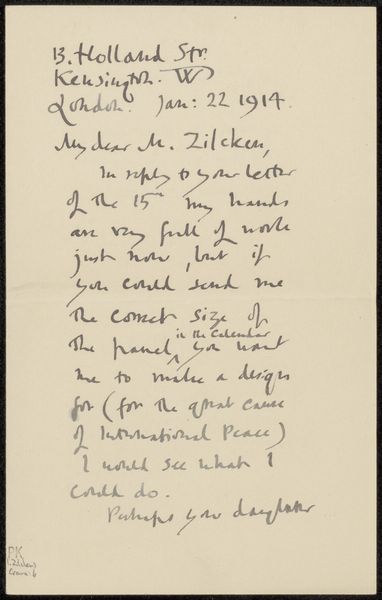 13. Holland Str.
Kensington. W
London. Jan: 22 1914.
My dear M. Zilcken,
In reply to your letter
of the 15th my hands
are very full of work
just now, but if
you could send me
the correct size of
in the Calendar
the panel, you want
me to make a design
for (for the great cause
of International Peace)
I would see what I
could do.
Perhaps your daughter
PK